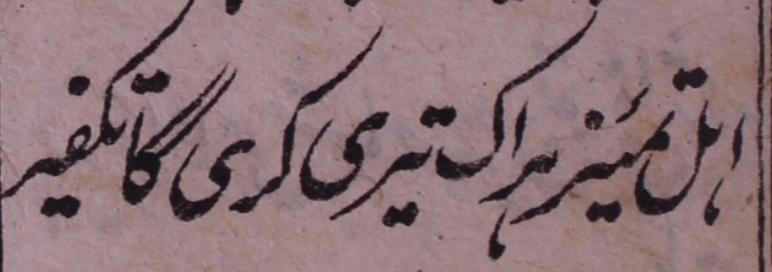 اہل تمیئز ہر اک تیری کری گا تکفیر